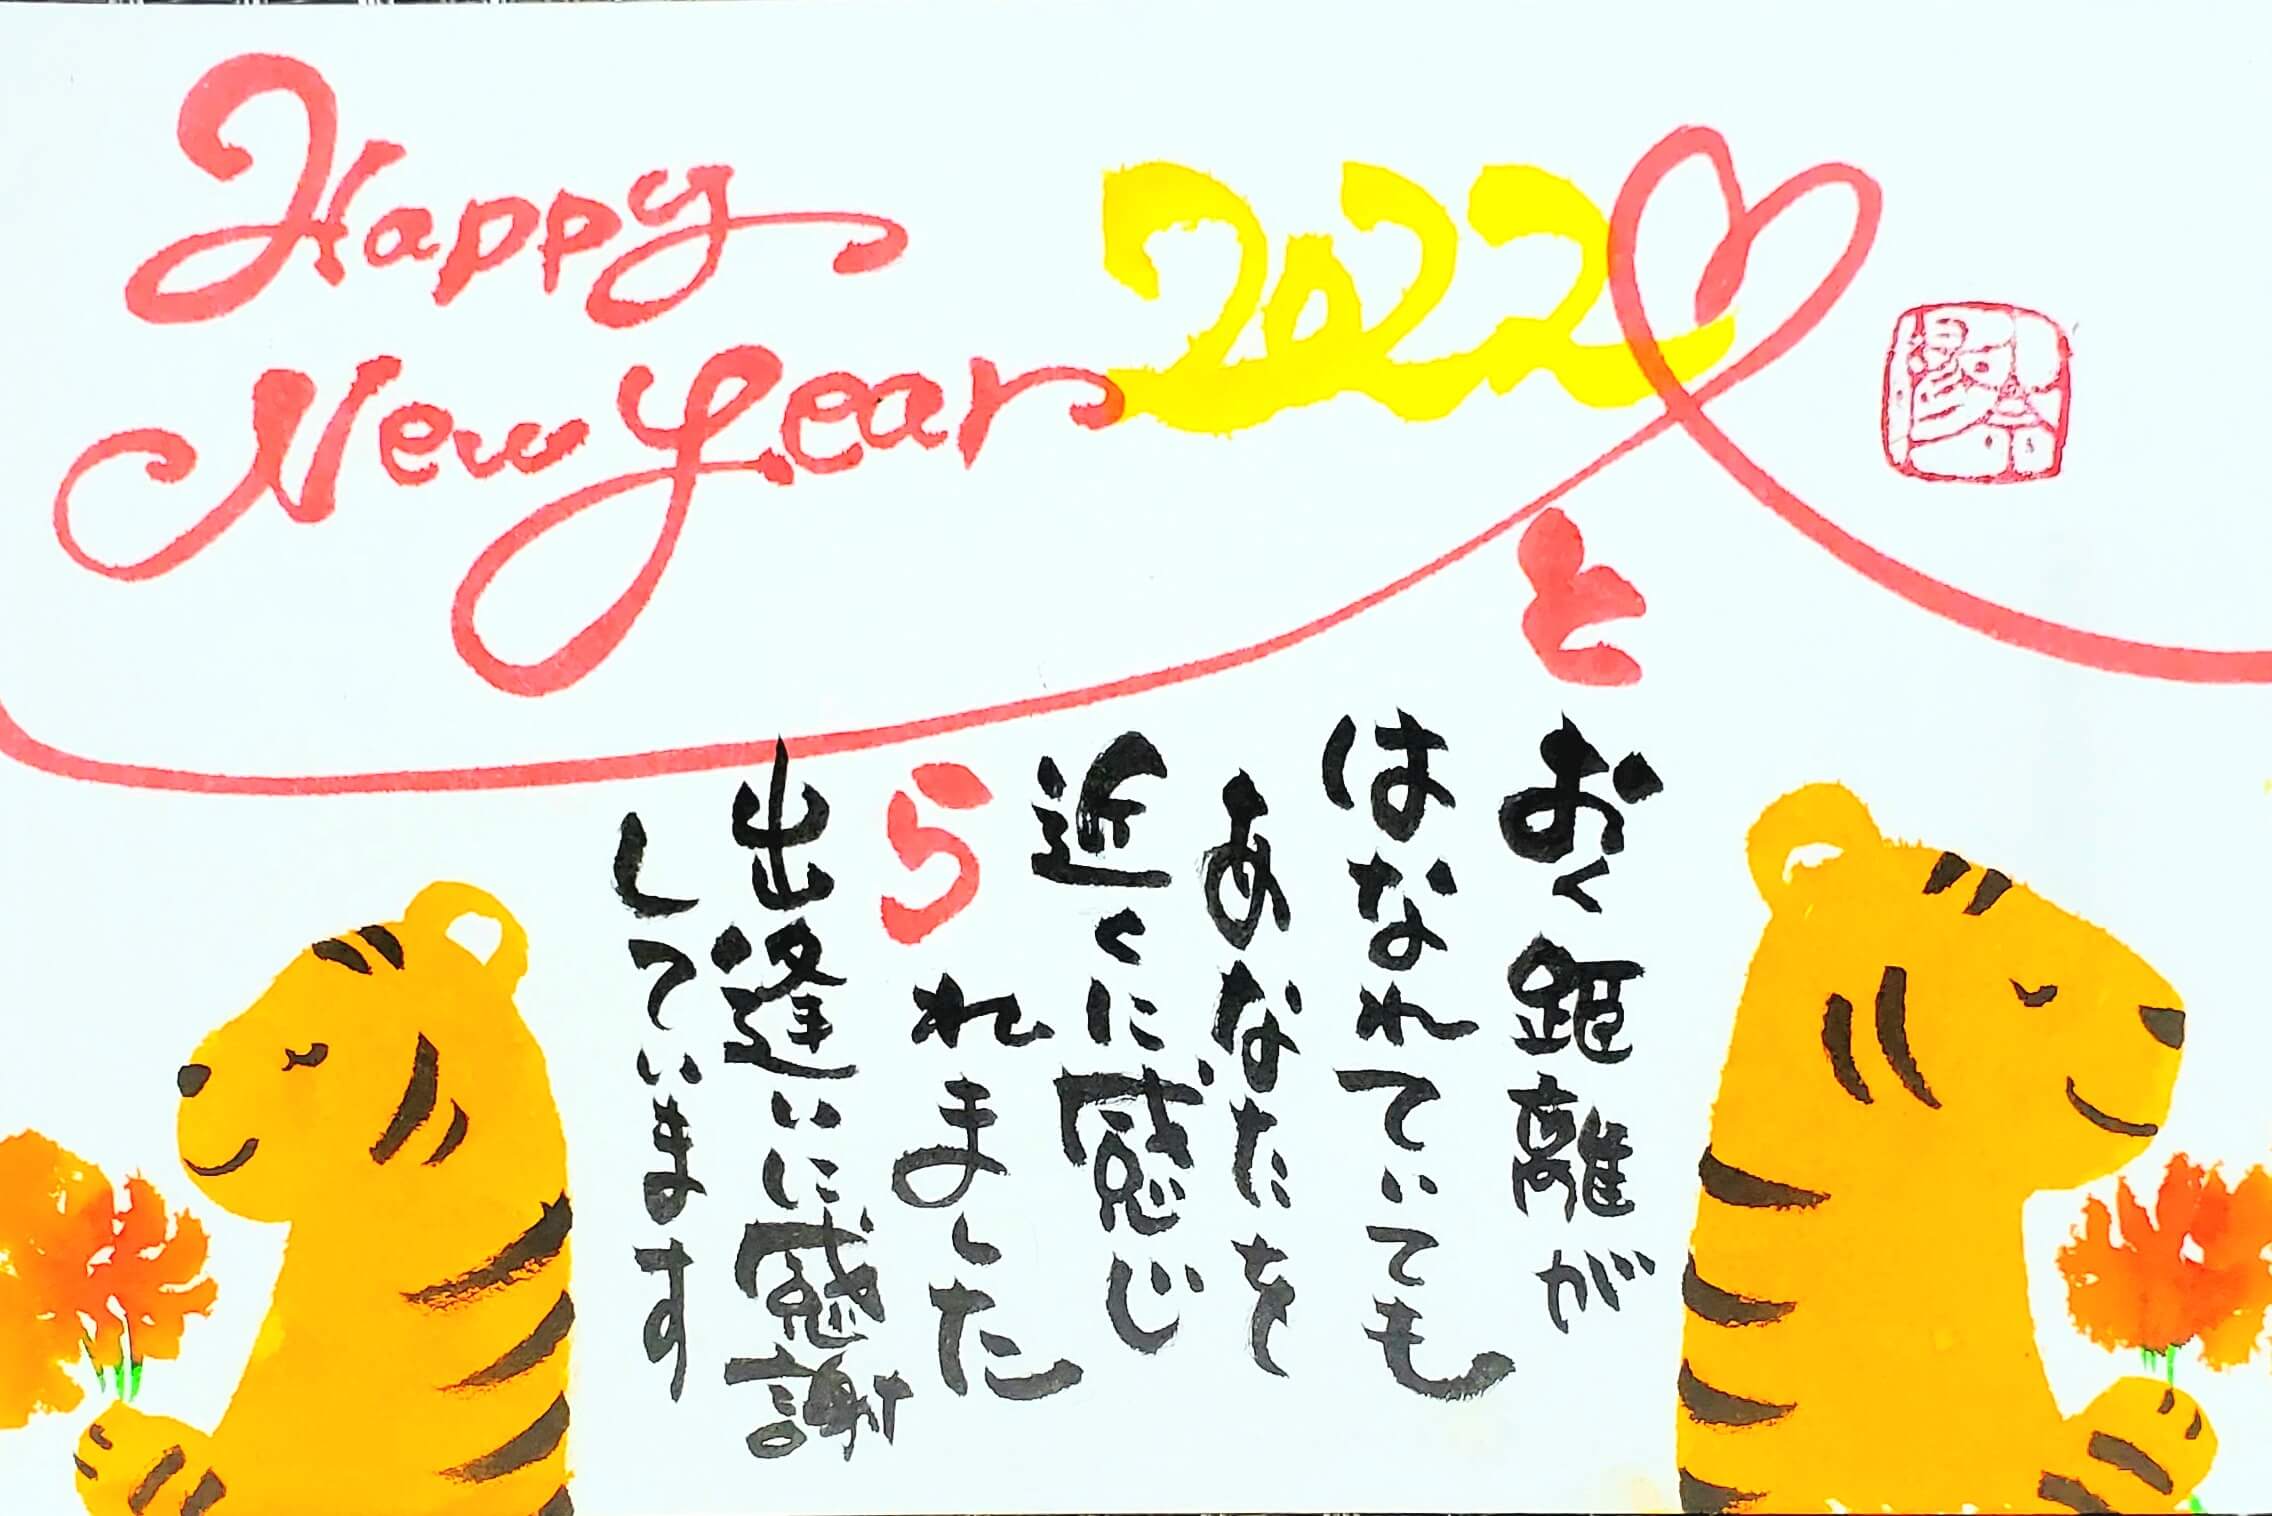 Happy
New Year 2022
とおく距離が
はなれていても
あなたを
近くに感じ
られました
出逢いに感謝
しています